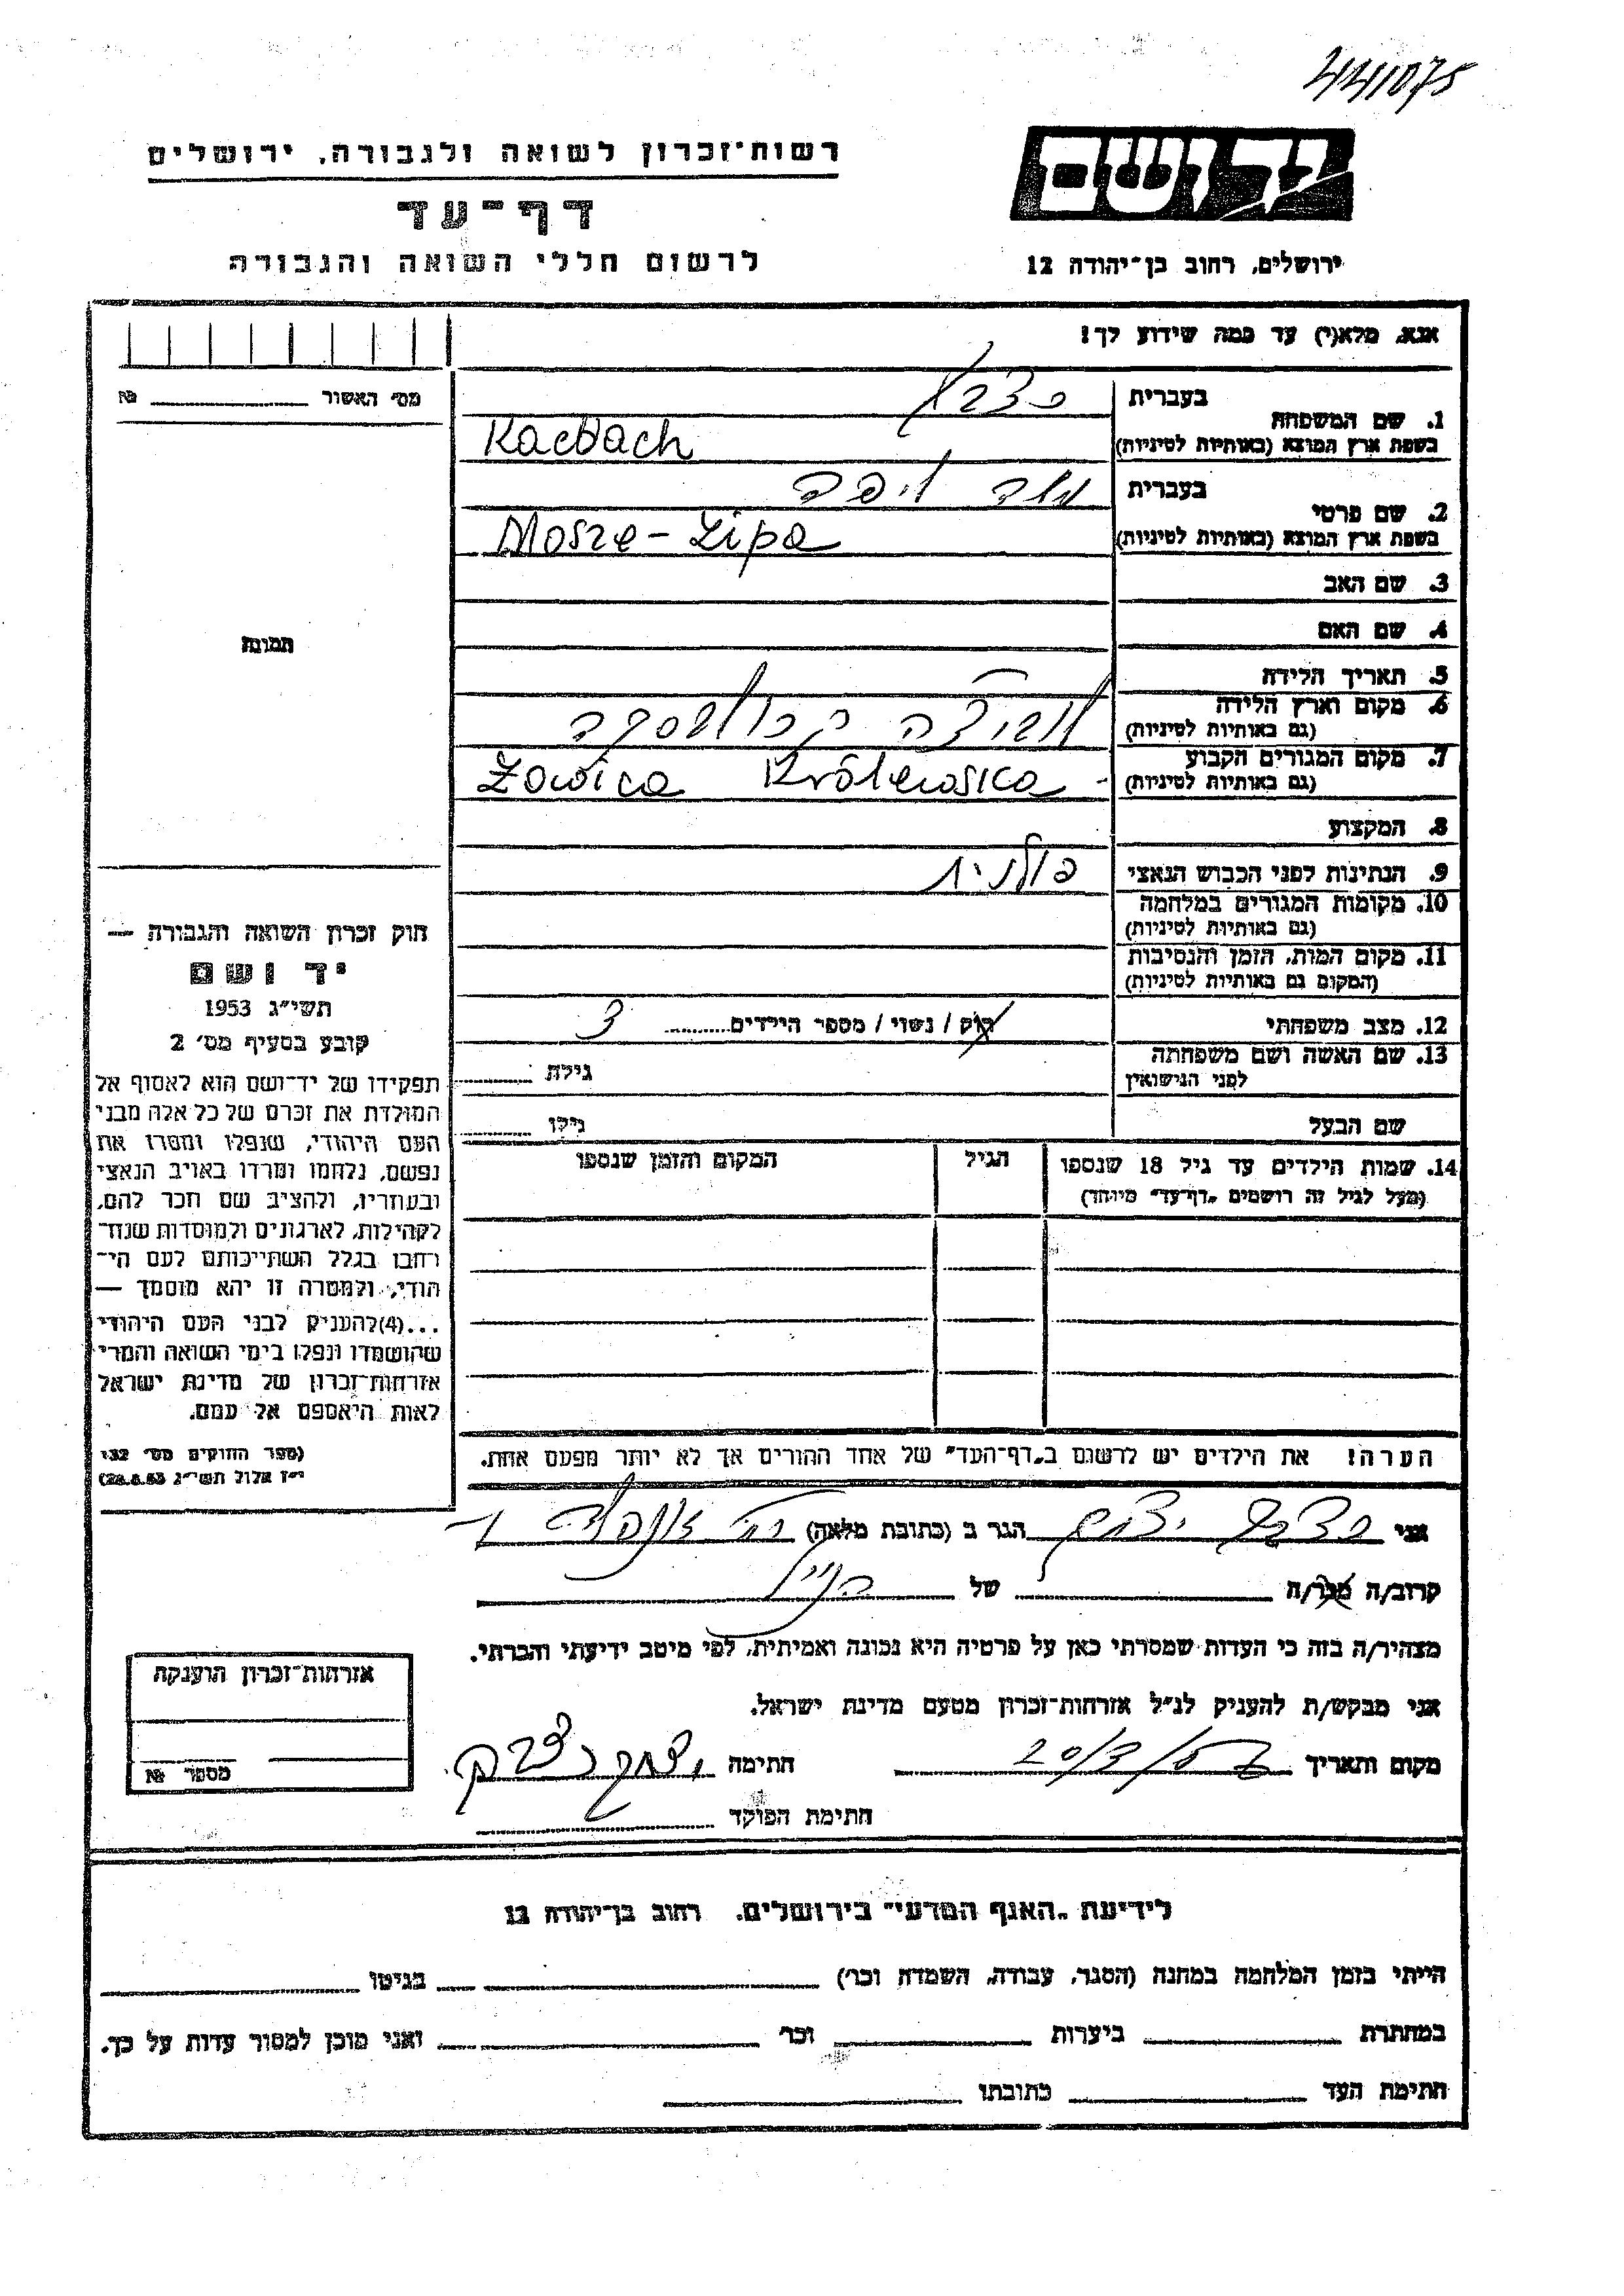 441075
יד ושם
רשות־זכרון לשואה ולגבורה, ירושלים
דף־עד
לרשום חללי השואה והגבורה
ירושלים, רחוב בן־יהודה 12
אנא, מלא(י) עד כמה שידוע לך!
מס׳ האשור №
1. שם המשפחה
בעברית
בשפת ארץ המוצא (באותיות לטיניות) Kacbach
2. שם פרטי
בעברית
בשפת ארץ המוצא (באותיות לטיניות) Mosze - Lipa
3. שם האב
4. שם האם
תמונה
5. תאריך הלידה
6. מקום וארץ הלידה
(גם באותיות לטיניות)
7. מקום המגורים הקבוע
(גם באותיות לטיניות) Królewska
8. המקצוע
9. הנתינות לפני הכבוש הנאצי פולנית
10. מקומות המגורים במלחמה
(גם באותיות לטיניות)
11. מקום המות, הזמן והנסיבות
(המקום גם באותיות לטיניות)
12. מצב משפחתי רוק / נשוי / מספר הילדים 3
13. שם האשה ושם משפחתה
לפני הנישואין גילה
שם הבעל גילו
14. שמות הילדים עד גיל 18 שנספו הגיל המקום והזמן שנספו
(מעל לגיל זה רושמים „דף־עד״ מיוחד)
חוק זכרון השואה והגבורה —
יד ושם
תשי״ג 1953
קובע בסעיף מס׳ 2
תפקידו של יד־ושם הוא לאסוף אל
המולדת את זכרם של כל אלה מבני
העם היהודי, שנפלו ומסרו את
נפשם, נלחמו ומרדו באויב הנאצי
ובעוזריו, ולהציב שם וזכר להם,
לקהילות, לארגונים ולמוסדות שנח־
רחבו בגלל השתייכותם לעם הי־
הודי, ולמטרה זו יהא מוסמך —
...(4) להעניק לבני העם היהודי
שהושמדו ונפלו בימי השואה והמרי
אזרחות־זכרון של מדינת ישראל
לאות היאספם אל עמם.
(ספר החוקים מס׳ 132,
י״ז אלול תשי״ג 28.8.53)
הערה! את הילדים יש לרשום ב„דף־העד״ של אחד ההורים אך לא יותר מפעם אחת.
אני הגר ב (כתובת מלאה)
קרוב/ה מכר/ה של הנ״ל
מצהיר/ה בזה כי העדות שמסרתי כאן על פרטיה היא נכונה ואמיתית, לפי מיטב ידיעתי והכרתי.
אני מבקש/ת להעניק לנ״ל אזרחות־זכרון מטעם מדינת ישראל.
מקום ותאריך 20/3/ חתימה
חתימת הפוקד
אזרחות־זכרון הוענקה
מספר №
לידיעת „האגף המדעי״ בירושלים, רחוב בן־יהודה 12
הייתי בזמן המלחמה במחנה (הסגר, עבודה, השמדה וכו׳) בגיטו
במחתרת ביערות וכו׳ ואני מוכן למסור עדות על כך.
חתימת העד כתובתו